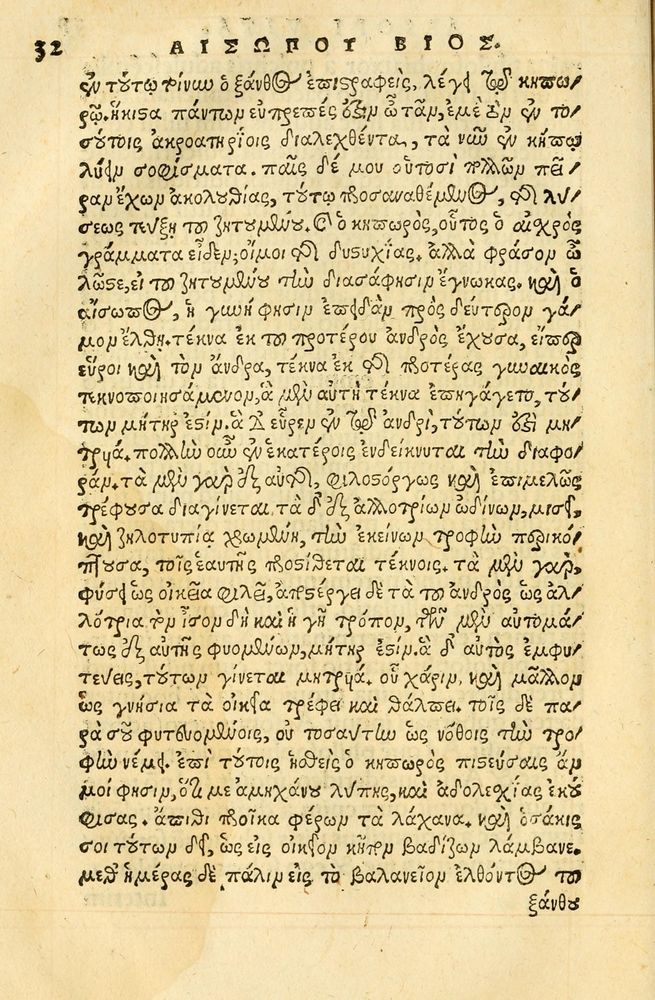 32 ΑΙΣΩΠΟΥ ΒΙΟΣ.
ἐν τούτῳ γίνου ὁ ξάνθος ἐπιστραφεὶς, λέγει τῷ κηπω/
ρῷ. ἥκιστα πάντων εὐπρεπές ἐστιν ὦ τᾶν, ἐμὲ τὸν ἐν το/
σούτοις ἀκροατηρίοις διαλεχθέντα, τὰ νῦν ἐν κήπῳ
λύειν σοφίσματα. παῖς δέ μου οὑτοσὶ πολλῶν πεῖ/
ραν ἔχων ἀκολουθίας, τούτῳ προσαναθέμενος, τῆς λύ/
σεως τεύξῃ τοῦ ζητουμένου. καὶ ὁ κηπωρὸς, οὗτος ὁ αἰσχρὸς
γράμματα εἶδεν; οἴμοι τῆς δυστυχίας. ἀλλὰ φράσον ὦ
λῶστε, εἰ τοῦ ζητουμένου τὴν διασάφησιν ἔγνωκας. καὶ ὁ
αἴσωπος, ἡ γυνή φησιν ἐπειδὰν πρὸς δεύτερον γά/
μον ἔλθῃ. τέκνα ἐκ τοῦ προτέρου ἀνδρὸς ἔχουσα, εἴπερ
εὕροι καὶ τὸν ἄνδρα, τέκνα ἐκ τῆς προτέρας γυναικὸς
τεκνοποιησάμενον, ἃ μὲν αὐτὴ τέκνα ἐπηγάγετο, τού/
των μήτηρ ἐστίν. ἃ δ' εὗρεν ἐν τῷ ἀνδρὶ, τούτων ἐστὶ μη/
τρυιά. πολλὴν οὖν ἐν ἑκατέροις ἐνδείκνυται τὴν διαφο/
ράν. τὰ μὲν γὰρ ἐξ αὐτῆς, φιλοστόργως καὶ ἐπιμελῶς
τρέφουσα διαγίνεται. τὰ δ' ἐξ ἀλλοτρίων ὠδίνων, μισεῖ,
καὶ ζηλοτυπία χρωμένη, τὴν ἐκείνων τροφὴν περικό/
πτουσα, τοῖς ἑαυτῆς προστίθεται τέκνοις. τὰ μὲν γὰρ,
φύσει ὡς οἰκεῖα φιλεῖ, ἀποστέργει δὲ τὰ τοῦ ἀνδρὸς ὡς ἀλ/
λότρια. τὸν ἶσον δὴ καὶ ἡ γῆ τρόπον, τῶν μὲν αὐτομά/
τως ἐξ αὐτῆς φυομένων, μήτηρ ἐστίν. ἃ δ' αὐτὸς ἐμφυ/
τεύεις, τούτων γίνεται μητρυιά. οὗ χάριν, καὶ μᾶλλον
ὡς γνήσια τὰ οἰκεῖα τρέφει καὶ θάλπει. τοῖς δὲ πα/
ρὰ σοῦ φυτευομένοις, οὐ τοσαύτην ὡς νόθοις τὴν τρο/
φὴν νέμει. ἐπὶ τούτοις ἡσθεὶς ὁ κηπωρὸς πιστεύσαις ἄν
μοί φησιν, ὅτι με ἀμηχάνου λύπης, καὶ ἀδολεσχίας ἐκού/
φισας. ἄπιθι προῖκα φέρων τὰ λάχανα. καὶ ὁσάκις
σοι τούτων δεῖ, ὡς εἰς οἰκεῖον κῆπον βαδίζων λάμβανε.
μεθ' ἡμέρας δὲ πάλιν εἰς τὸ βαλανεῖον ἐλθόντος τοῦ
ξάνθου